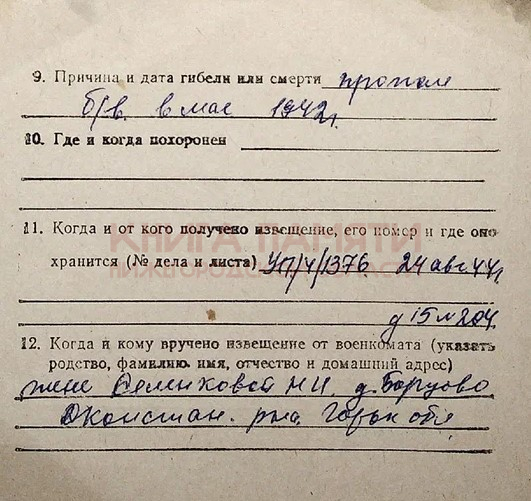 9. Причина и дата гибели или смерти пропал
б/в. в мае 1942г.
10. Где и когда похоронен
11. Когда и от кого получено извещение, его номер и где оно
КНИГА ПАМЯТИ
хранится (№ дела и листа) УП/ч/1376 24 авг 44г.
НИЖЕГОРОДСКОЙ ОБЛАСТИ
д 15 л 204.
12. Когда и кому вручено извещение от военкомата (указать
родство, фамилию, имя, отчество и домашний адрес)
жене Селенковой Н И. д.
р-на. Горьк обл